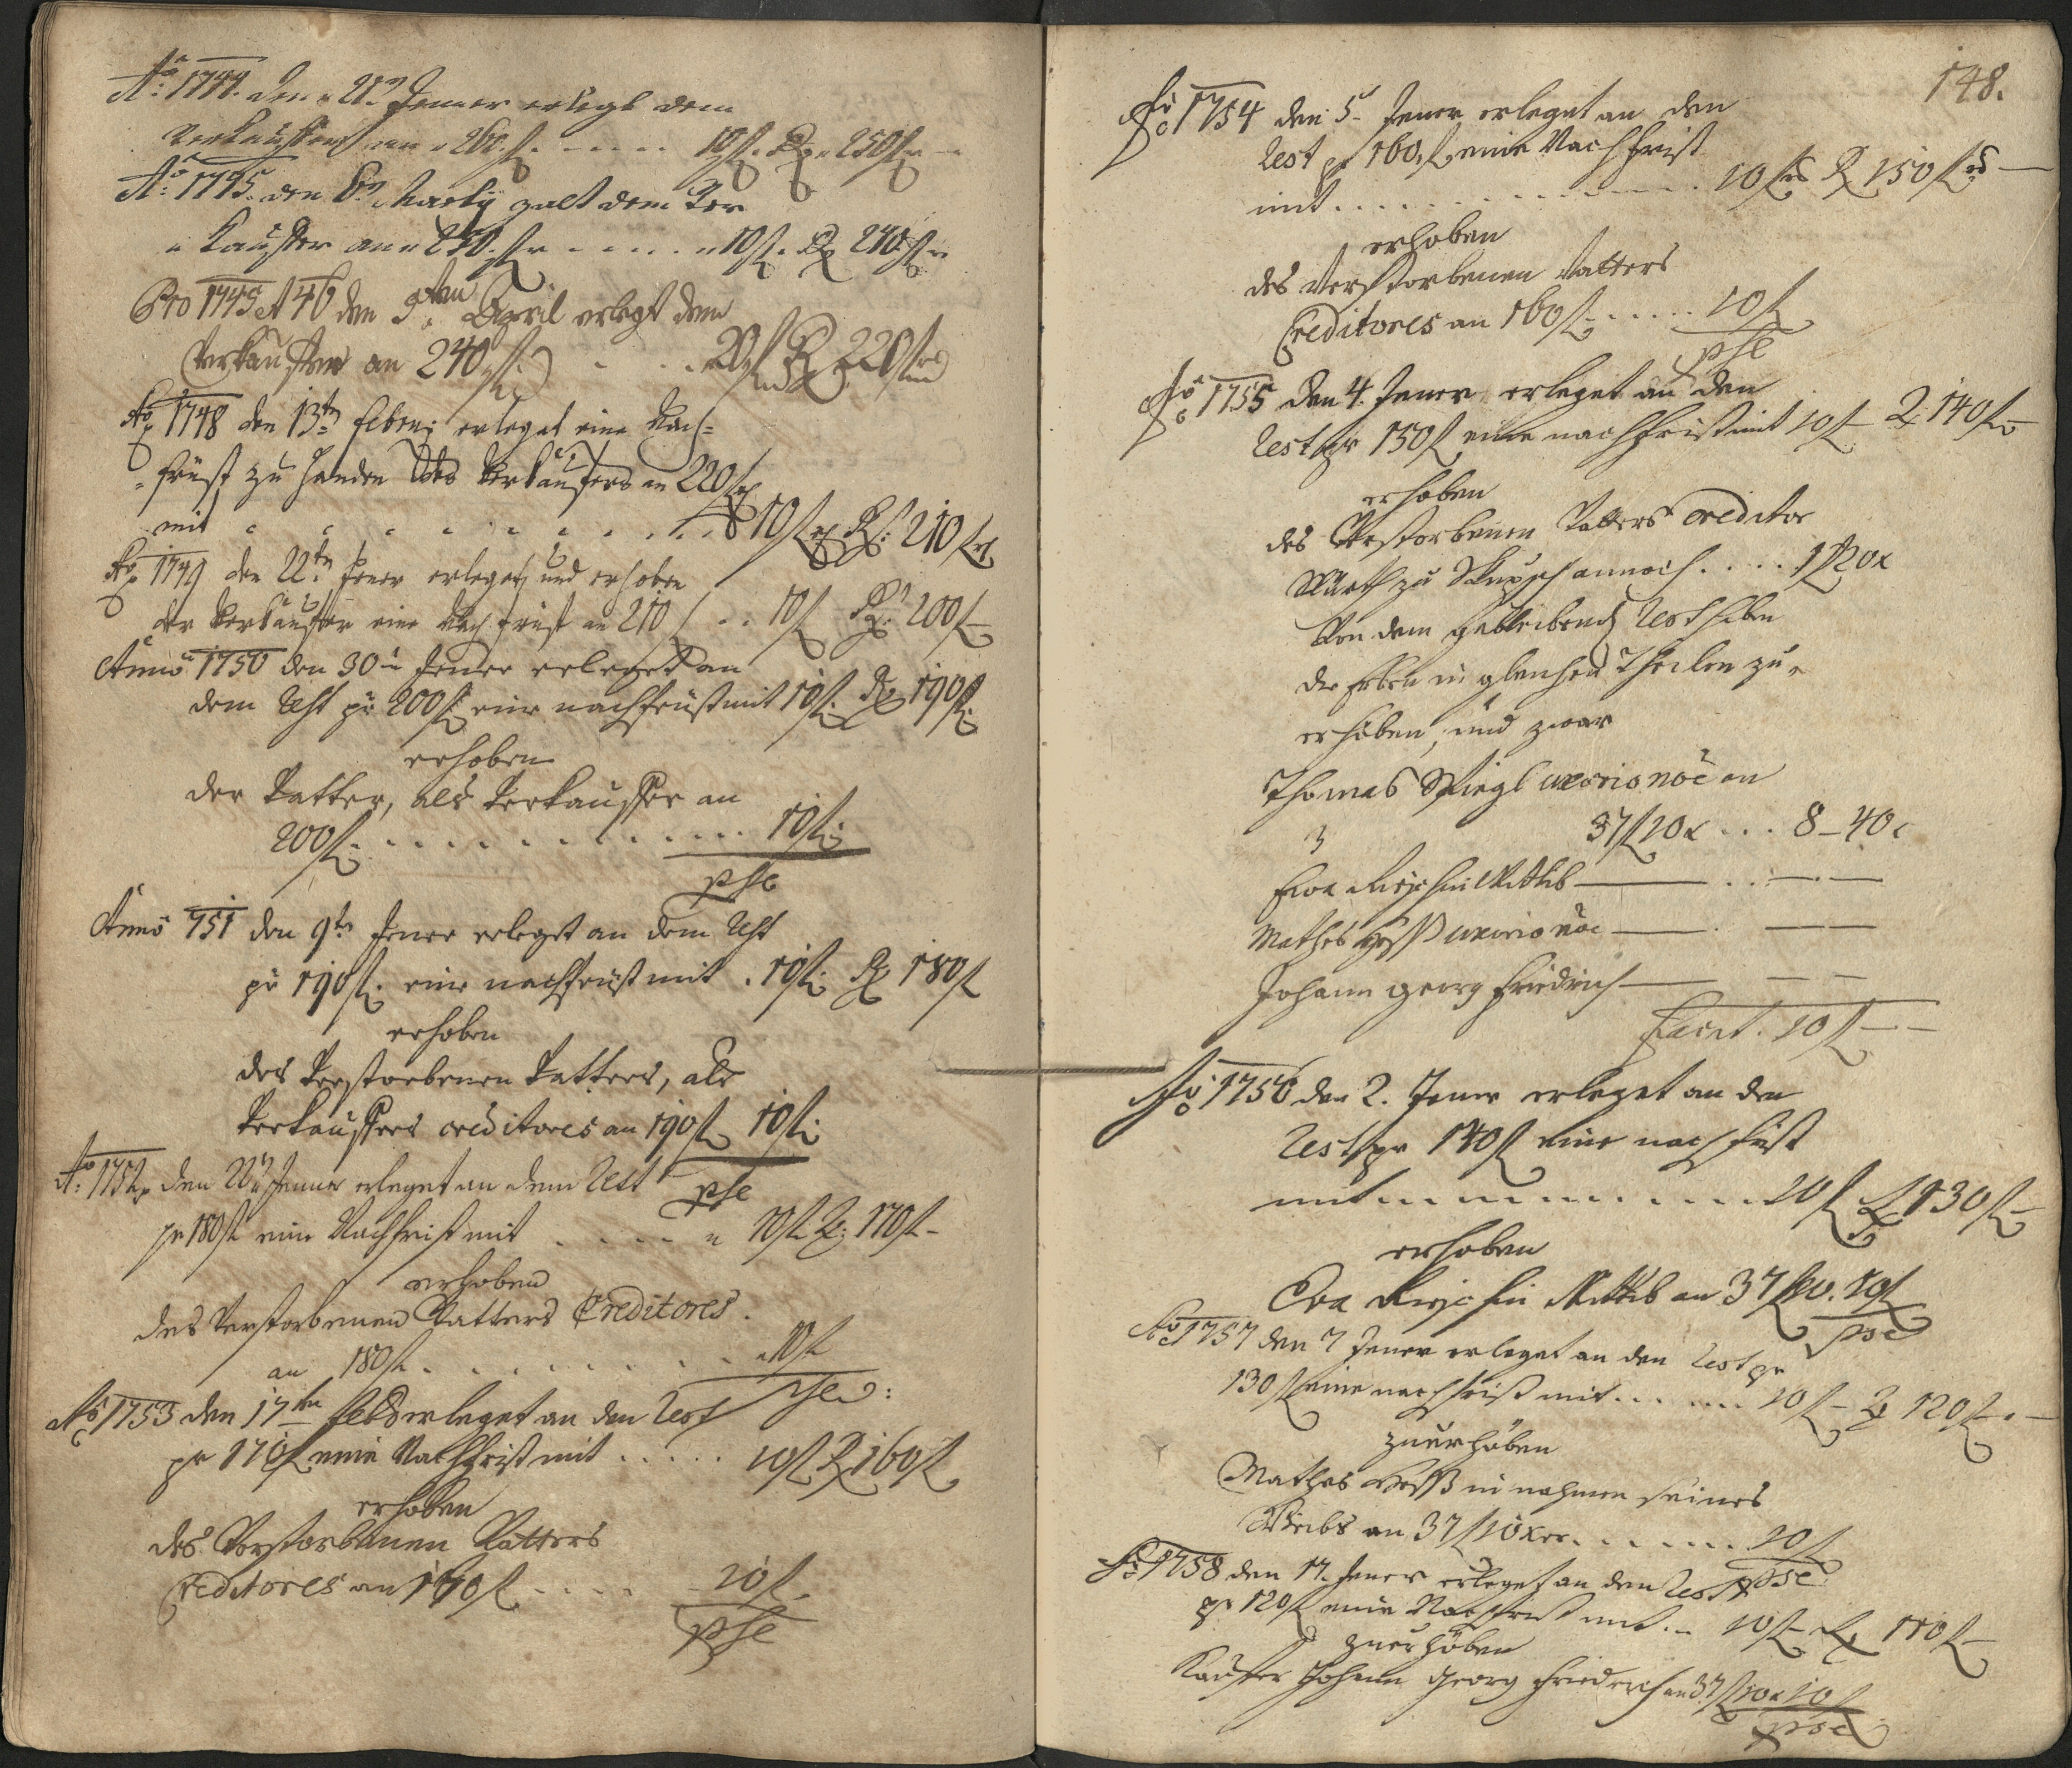 Aõ: 1744. den 21t Jenner erlegt dem
Verkauffern an 260 f. . . . . . 10 f. R. 250 f.
Aõ: 1745. den 6t Martÿ galt dem Ver
Kauffer an 250. f. . . . . . 10 f. R. 240 f.
Pro 1745 et 46 den 9ten April erlegt dem
Verkauffer an 240 f. . . . 20 f. R 220 f.
Aõ 1748 den 13tn Febr: erleget eine Nach=
=früst zu Handen des Verkäuffers an 220 f
mit . . . . . . . . . 10 f R: 210 f
Aõ 1749 den 22tn Jener erleget, und erhoben
der Verkäuffer eine Nachfrüst an 210 f . . 10 f R: 200 f
Anno 1750 den 30tn Jener erleget an
dem Rest pr 200 f: eine nachfrüst mit 10 f: R 190 f:
erhoben
der Vatter, als Verkauffer an
200 f: . . . . . . . . . . . . 10 f:
pse
Anno 751 den 9tn Jener erleget an dem Rest
pr 190 f: eine nachfrüst mit . 10 f: R 180 f
erhoben
des Verstorbenen Vatters, als
Verkauffers creditores an 190 f 10 f:
pse
Aõ: 1752 den Jenner erleget an dem Rest
pr 180 f eine Nachfrist mit . . . . 10 f R: 170 f
erhoben
des Verstorbenen Vatters Creditores.
an 180 f. . . . . . . . . 10 f
pse
Aõ 1753 den 17ten Feb erleget an den Rest
pr 170 f eine Nachfrist mit . . . . . 10 f R 160 f
erhoben
des Verstorbenen Vatters
Creditores an 170 f . . . . 10 f.
pse
148.
Aõ 1754 den 5. Jener erleget an den
Rest pr 160 f eine Nachfrist
mit . . . . . . . . . . . . 10 f R 150 f
erhoben
des Verstorbenen Vatters
Creditores an 160 f: . . . . . 10 f
pse
Aõ 1755 den 4. Jener erleget an den
Rest pr 150 f eine nachfrist mit 10 f R 140 f
erhoben
des Verstorbenen Vatters Creditor
Würth zu annoch . . . . 1 f 20 x
Von dem Rest haben
die Erben in gleichen Theilen zu
erhöben, und zwar
Thomas Spiegl uxorio nõe an
37 f 10 x . . . 8 – 40 x
Eva Wittib — . — —
Mathes Heß uxorio nõe — . — —
Johann georg Friedrich — — —
Facit . 10 f — —
Aõ 1756 den 2. Jener erleget an den
Rest pr 140 f eine nachfrist
mit . . . . . . . . . 10 f R 130 f
erhoben
Eva Wittib an 37 f 10. 10 f
pse
Aõ 1757 den 7 Jener erleget an den Rest pr
130 f eine nachfrist mit . . . . . . 10 f – R 120 f
zuerhöben
Mathes Heß in nahmen seines
Weibs an 37 f 10 xer. . . . . . . 10 f
pse
Aõ 1758 den 17. Jener erleget an den Rest
pr 120 f eine Nachfrist mit . – 10 f – R 110 f –
zuerhöben
Kaufer Johann Georg Friederich an 37 f 10 x 10 f
pse